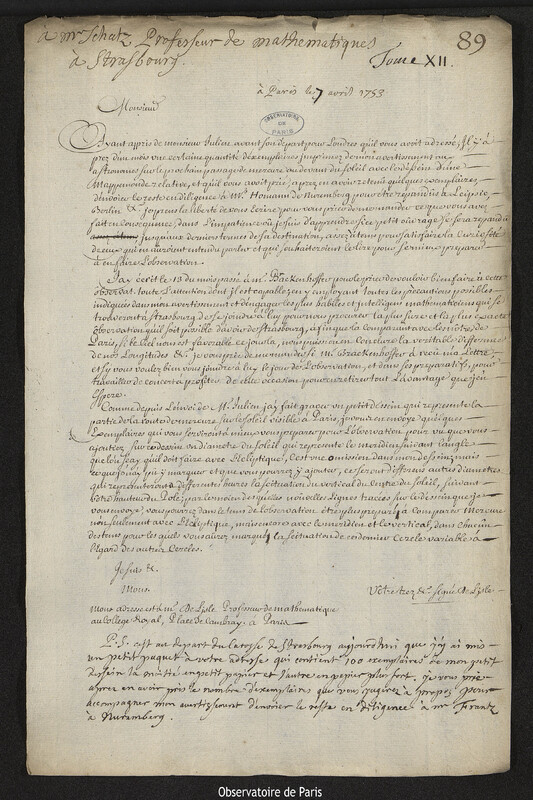 à mr Schatz Professeur de mathematiques
à Strasbourg.
Tome XII.
89
à Paris le 7 avril 1753
OBSERVATOIRE
DE
PARIS
Monsieur
Ayant appris de monsieur Julien, avant son depart pour Londres qu'il vous avoit adressé, Il y à
prez d'un mois une certaine quantité d'exemplaires imprimez de mon avertissement aux
astronomes sur le prochain passage de mercure au devant du soleil avec le dessein d'une
Mappemonde relative, et qu'il vous avoit prié, aprez en avoir retenu quelques exemplaires,
d'envoier le reste en diligence à Mr. Homann de Nuremberg pour être repandus à Leipsic,
Berlin &c. je prens la liberté de vous écrire pour vous prier de me mander ce que vous avez
fait en consequence, dans l'impatience où je suis d'apprendre si ce petit ouvrage se sera repandu
jusqu'aux derniers termes de sa destination, assez à tems pour satisfaire la curiosité
de ceux qui en auront entendu parler et qui souhaiteroient le lire pour se mieux preparer
à en faire l'observation.
J'ay écrit le 13 du mois passé à mr. Backenhoffer pour le prier de vouloir bien faire à cette
observat. toute l'attention dont il est capable, en y employant toutes les précautions possibles
indiquées dans mon avertissement et d'engager les plus habiles et intelligens mathematiciens qui se
trouveront à Strasbourg de se joindre à luy pour nous procurer la plus sure et la plus exacte
observation qu'il soit possible d'avoir de Strasbourg, afin que la comparant avec les nôtres de
Paris, si le Ciel nous est favorable ce jour la, nous puissions en conclure la veritable difference
de nos Longitudes &c. je vous prie de me mander si M. Brackenhoffer à reçu ma Lettre,
et si vous voulez bien vous joindre à luy le jour de l'observation, et dans ses preparatifs, pour
travailler de concert a profiter de cette occasion pour en retirer tout l'avantage que j'en
espere.
Comme depuis l'envoi de Mr. Julien j'ay fait graver un petit dessein qui represente la
partie de la route de mercure sur le soleil visible à Paris, je vous en envoye quelques
Exemplaires qui vous serviront à mieux vous preparer pour l'observation pour vu que vous
ajoutiez sur ce dessein un diametre du soleil qui represente le meridien suivant l'angle
que l'on sçay qu'il doit faire avec l'Ecliptique, c'est une omission dans mon dessein; mais
ce que je n'ay pu y marquer et que vous pourrez y ajouter, ce seront differens autres diametres
qui representeront à differentes heures la situation du vertical du centre du soleil, suivant
votre hauteur du Pole; par le moien des quelles nouvelles Lignes tracées sur le dessin que je
vous envoye; vous pourrez dans le tems de l'observation être plus preparé à comparer Mercure
non seulement avec l'Ecliptique, mais encore avec le meridien et le vertical, dans chacun
des tems pour les quels vous aurez marqué la situation de ce dernier Cercle variable à
l'égard des autres Cercles.
Je suis &c.
Mons.
Votre trez &c. signé De L'isle
mons adresse est à mr. De L'isle Professeur de mathematique
au College Royal, Place de Cambray à Paris
P.S. c'est au depart du carosse de Strasbourg aujourdhui que j'y ai mis
un petit paquet à votre adresse qui contient 100 exemplaires de mon petit
dessein la moitié en petit papier et l'autre en papier plus fort. je vous prie
aprez en avoir pris le nombre d'exemplaires que vous jugerez à propos pour
accompagner mon avertissement d'envoier le reste en diligence à mr Frantz
à Nuremberg.
Observatoire de Paris